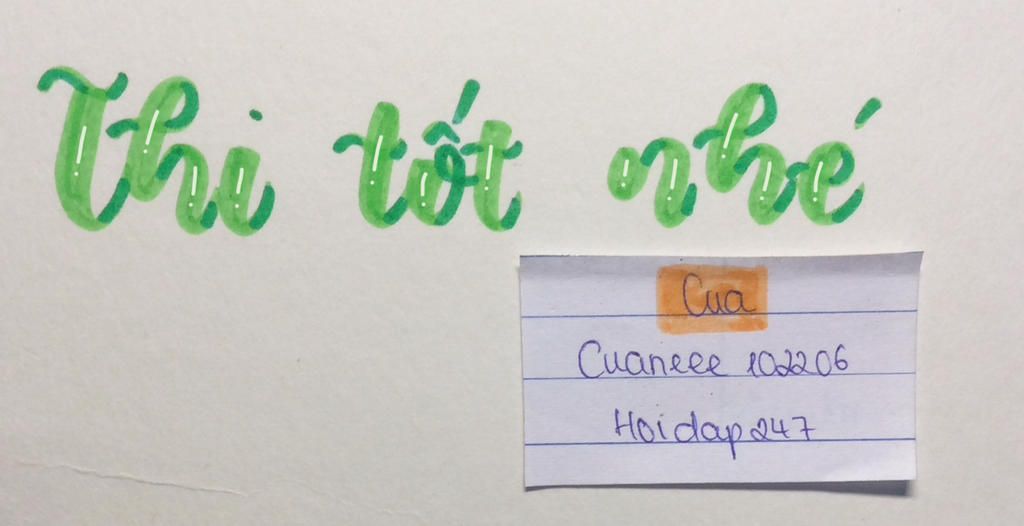 Thi tốt nhé
Cua
Cuaneee 102206
Hoidap247